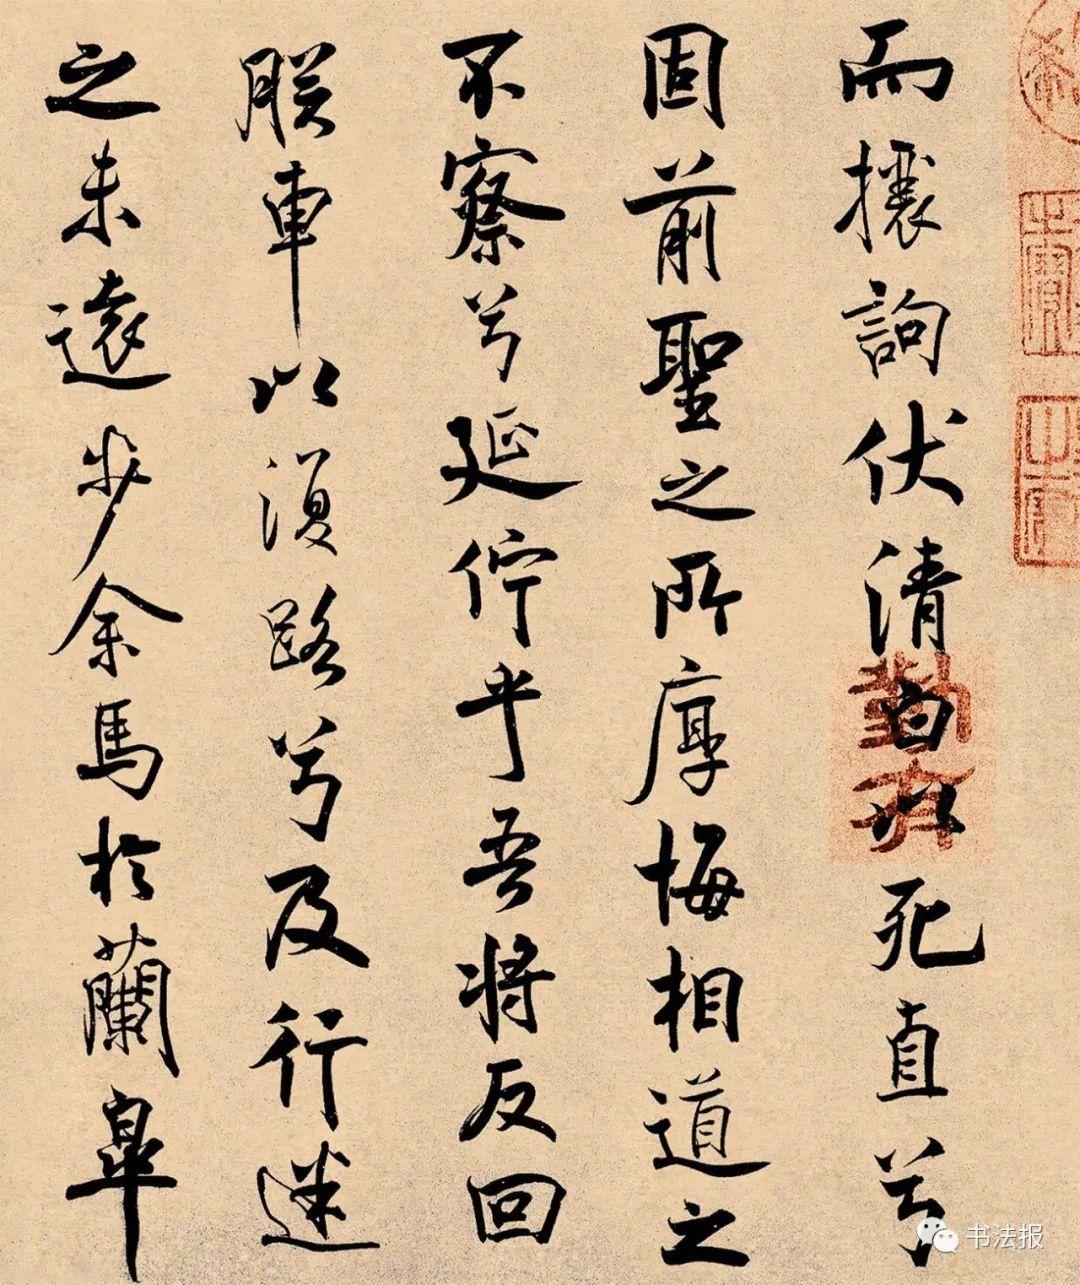 而攘訽伏清白以死直兮
固前聖之所厚悔相道之
不察兮延佇乎吾將反回
朕車以復路兮及行迷
之未遠步余馬於蘭皐
书法报